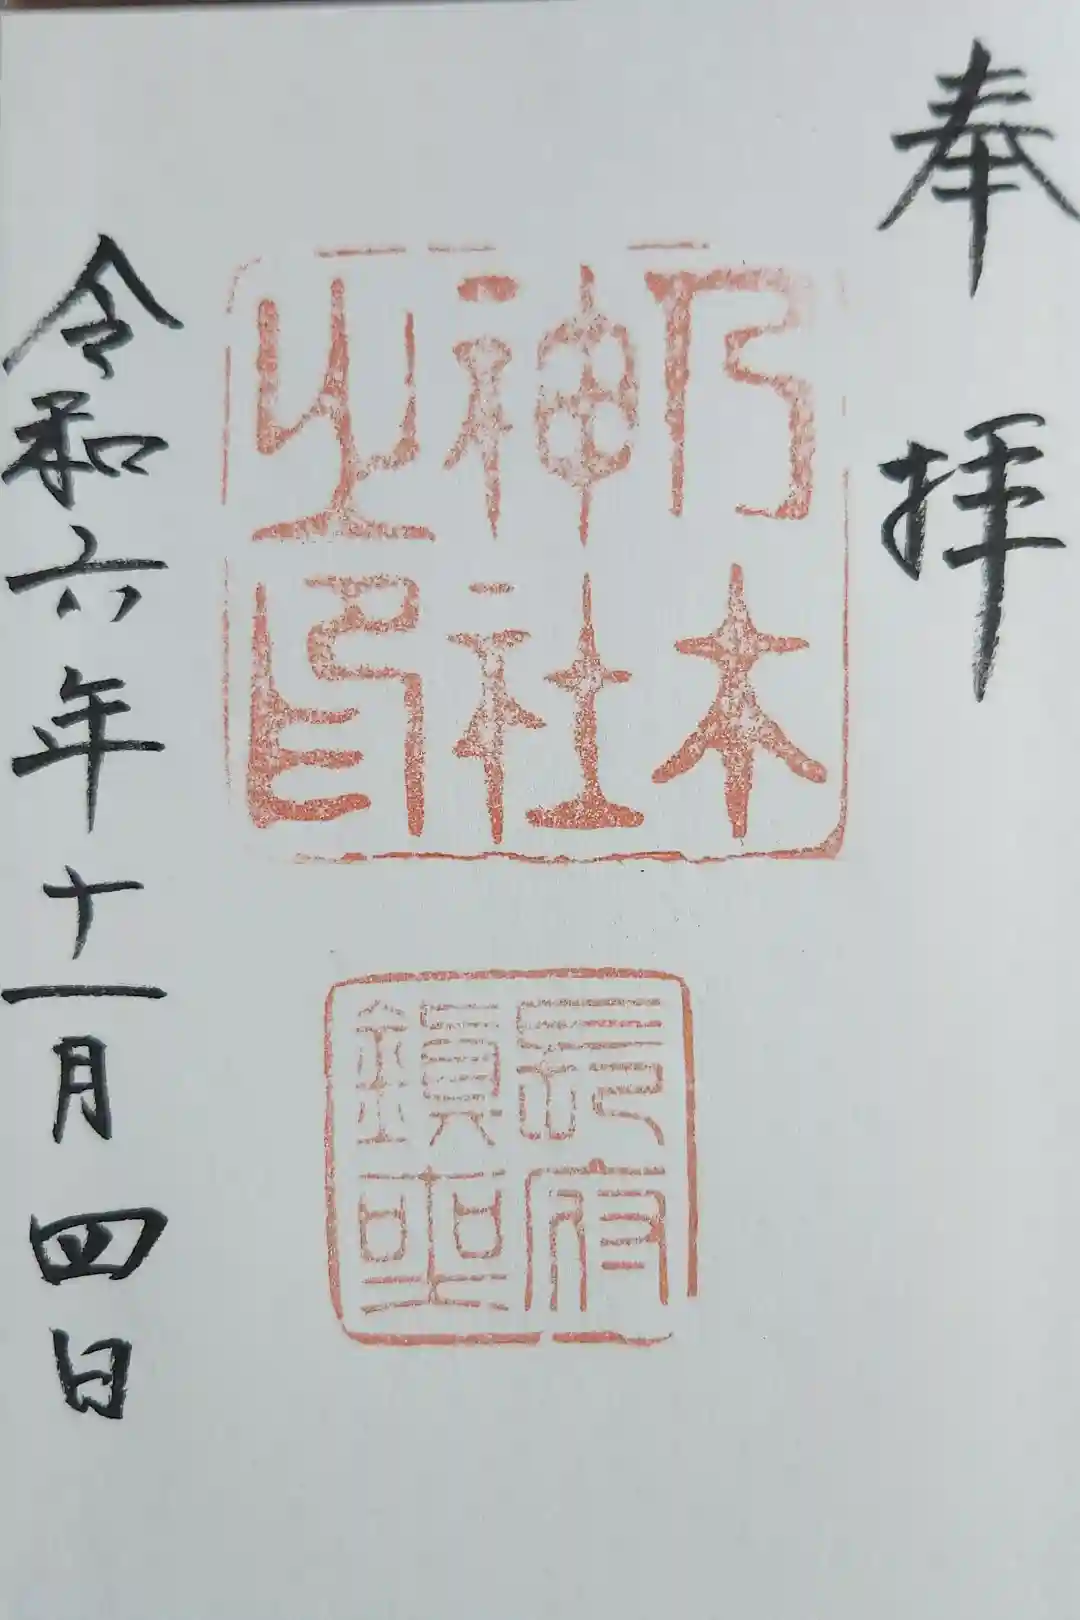 奉拝
乃木
神社
之印
長府
鎮座
令和六年十一月四日